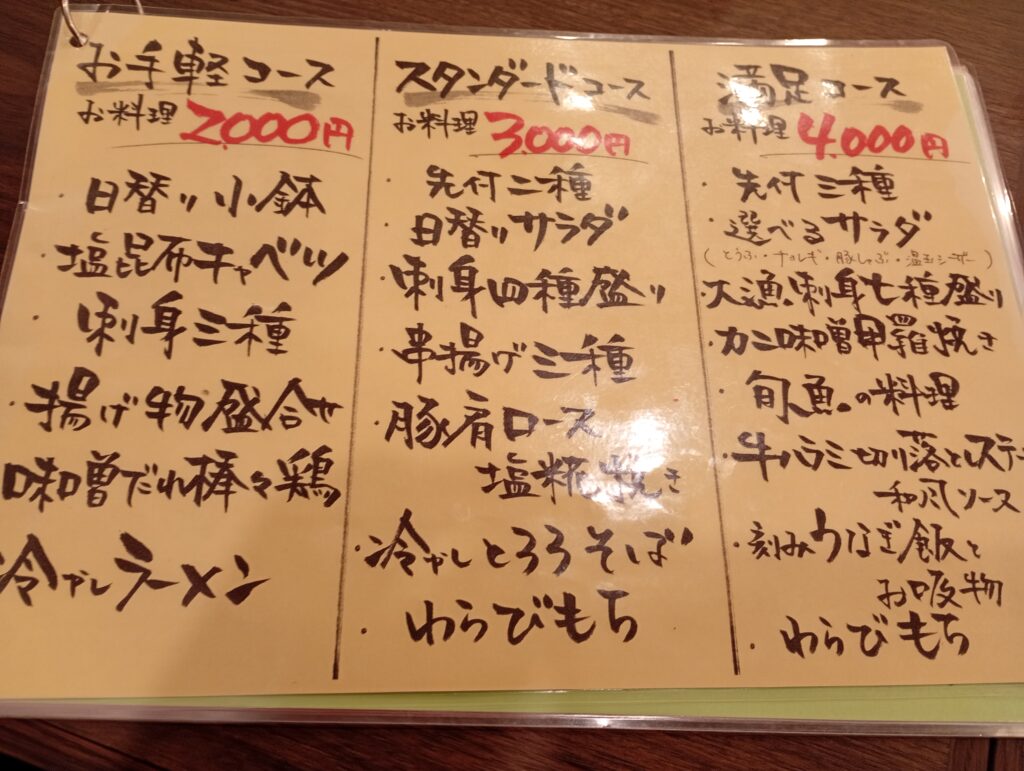 お手軽コース
お料理 2,000円
・日替り小鉢
・塩昆布キャベツ
・刺身三種
・揚げ物盛合せ
味噌だれ棒々鶏
冷やしラーメン
スタンダードコース
お料理 3,000円
・先付二種
・日替りサラダ
・刺身四種盛り
・串揚げ三種
・豚肩ロース
塩糀焼き
・冷やしとろろそば
・わらびもち
満足コース
お料理 4,000円
・先付三種
・選べるサラダ
(とうふ・チョレギ・豚しゃぶ・温玉シーザー)
・大漁刺身七種盛り
・カニ味噌甲羅焼き
・旬魚の料理
・牛ハラミ切り落としステー
和風ソース
・刻みうなぎ飯と
お吸物
・わらびもち